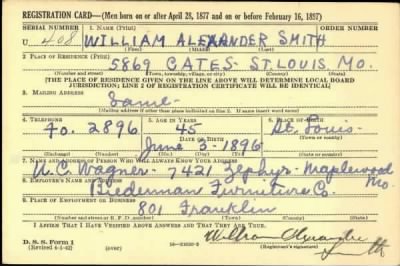 REGISTRATION CARD—(Men born on or after April 28, 1877 and on or before February 16, 1897)
SERIAL NUMBER 1. NAME (Print) ORDER NUMBER
U 408 WILLIAM ALEXANDER SMITH
(First) (Middle) (Last)
2. PLACE OF RESIDENCE (Print)
5869 CATES - ST. LOUIS, MO.
(Number and street) (Town, township, village, or city) (County) (State)
[THE PLACE OF RESIDENCE GIVEN ON THE LINE ABOVE WILL DETERMINE LOCAL BOARD
JURISDICTION; LINE 2 OF REGISTRATION CERTIFICATE WILL BE IDENTICAL]
3. MAILING ADDRESS
Same -
[Mailing address if other than place indicated on line 2. If same insert word same]
4. TELEPHONE 5. AGE IN YEARS 6. PLACE OF BIRTH
Fo. 2896 45 St. Louis -
DATE OF BIRTH (Town or county)
June 3 - 1896
(Exchange) (Number) (Mo.) (Day) (Yr.) (State or country)
7. NAME AND ADDRESS OF PERSON WHO WILL ALWAYS KNOW YOUR ADDRESS
W. C. Wagner - 7421 Zephyr - Maplewood Mo.
8. EMPLOYER'S NAME AND ADDRESS
Biederman Furniture Co.
9. PLACE OF EMPLOYMENT OR BUSINESS
801 Franklin
(Number and street or R. F. D. number) (Town) (County) (State)
I AFFIRM THAT I HAVE VERIFIED ABOVE ANSWERS AND THAT THEY ARE TRUE.
D. S. S. Form 1
(Revised 4-1-42) (over)
William Alexander Smith